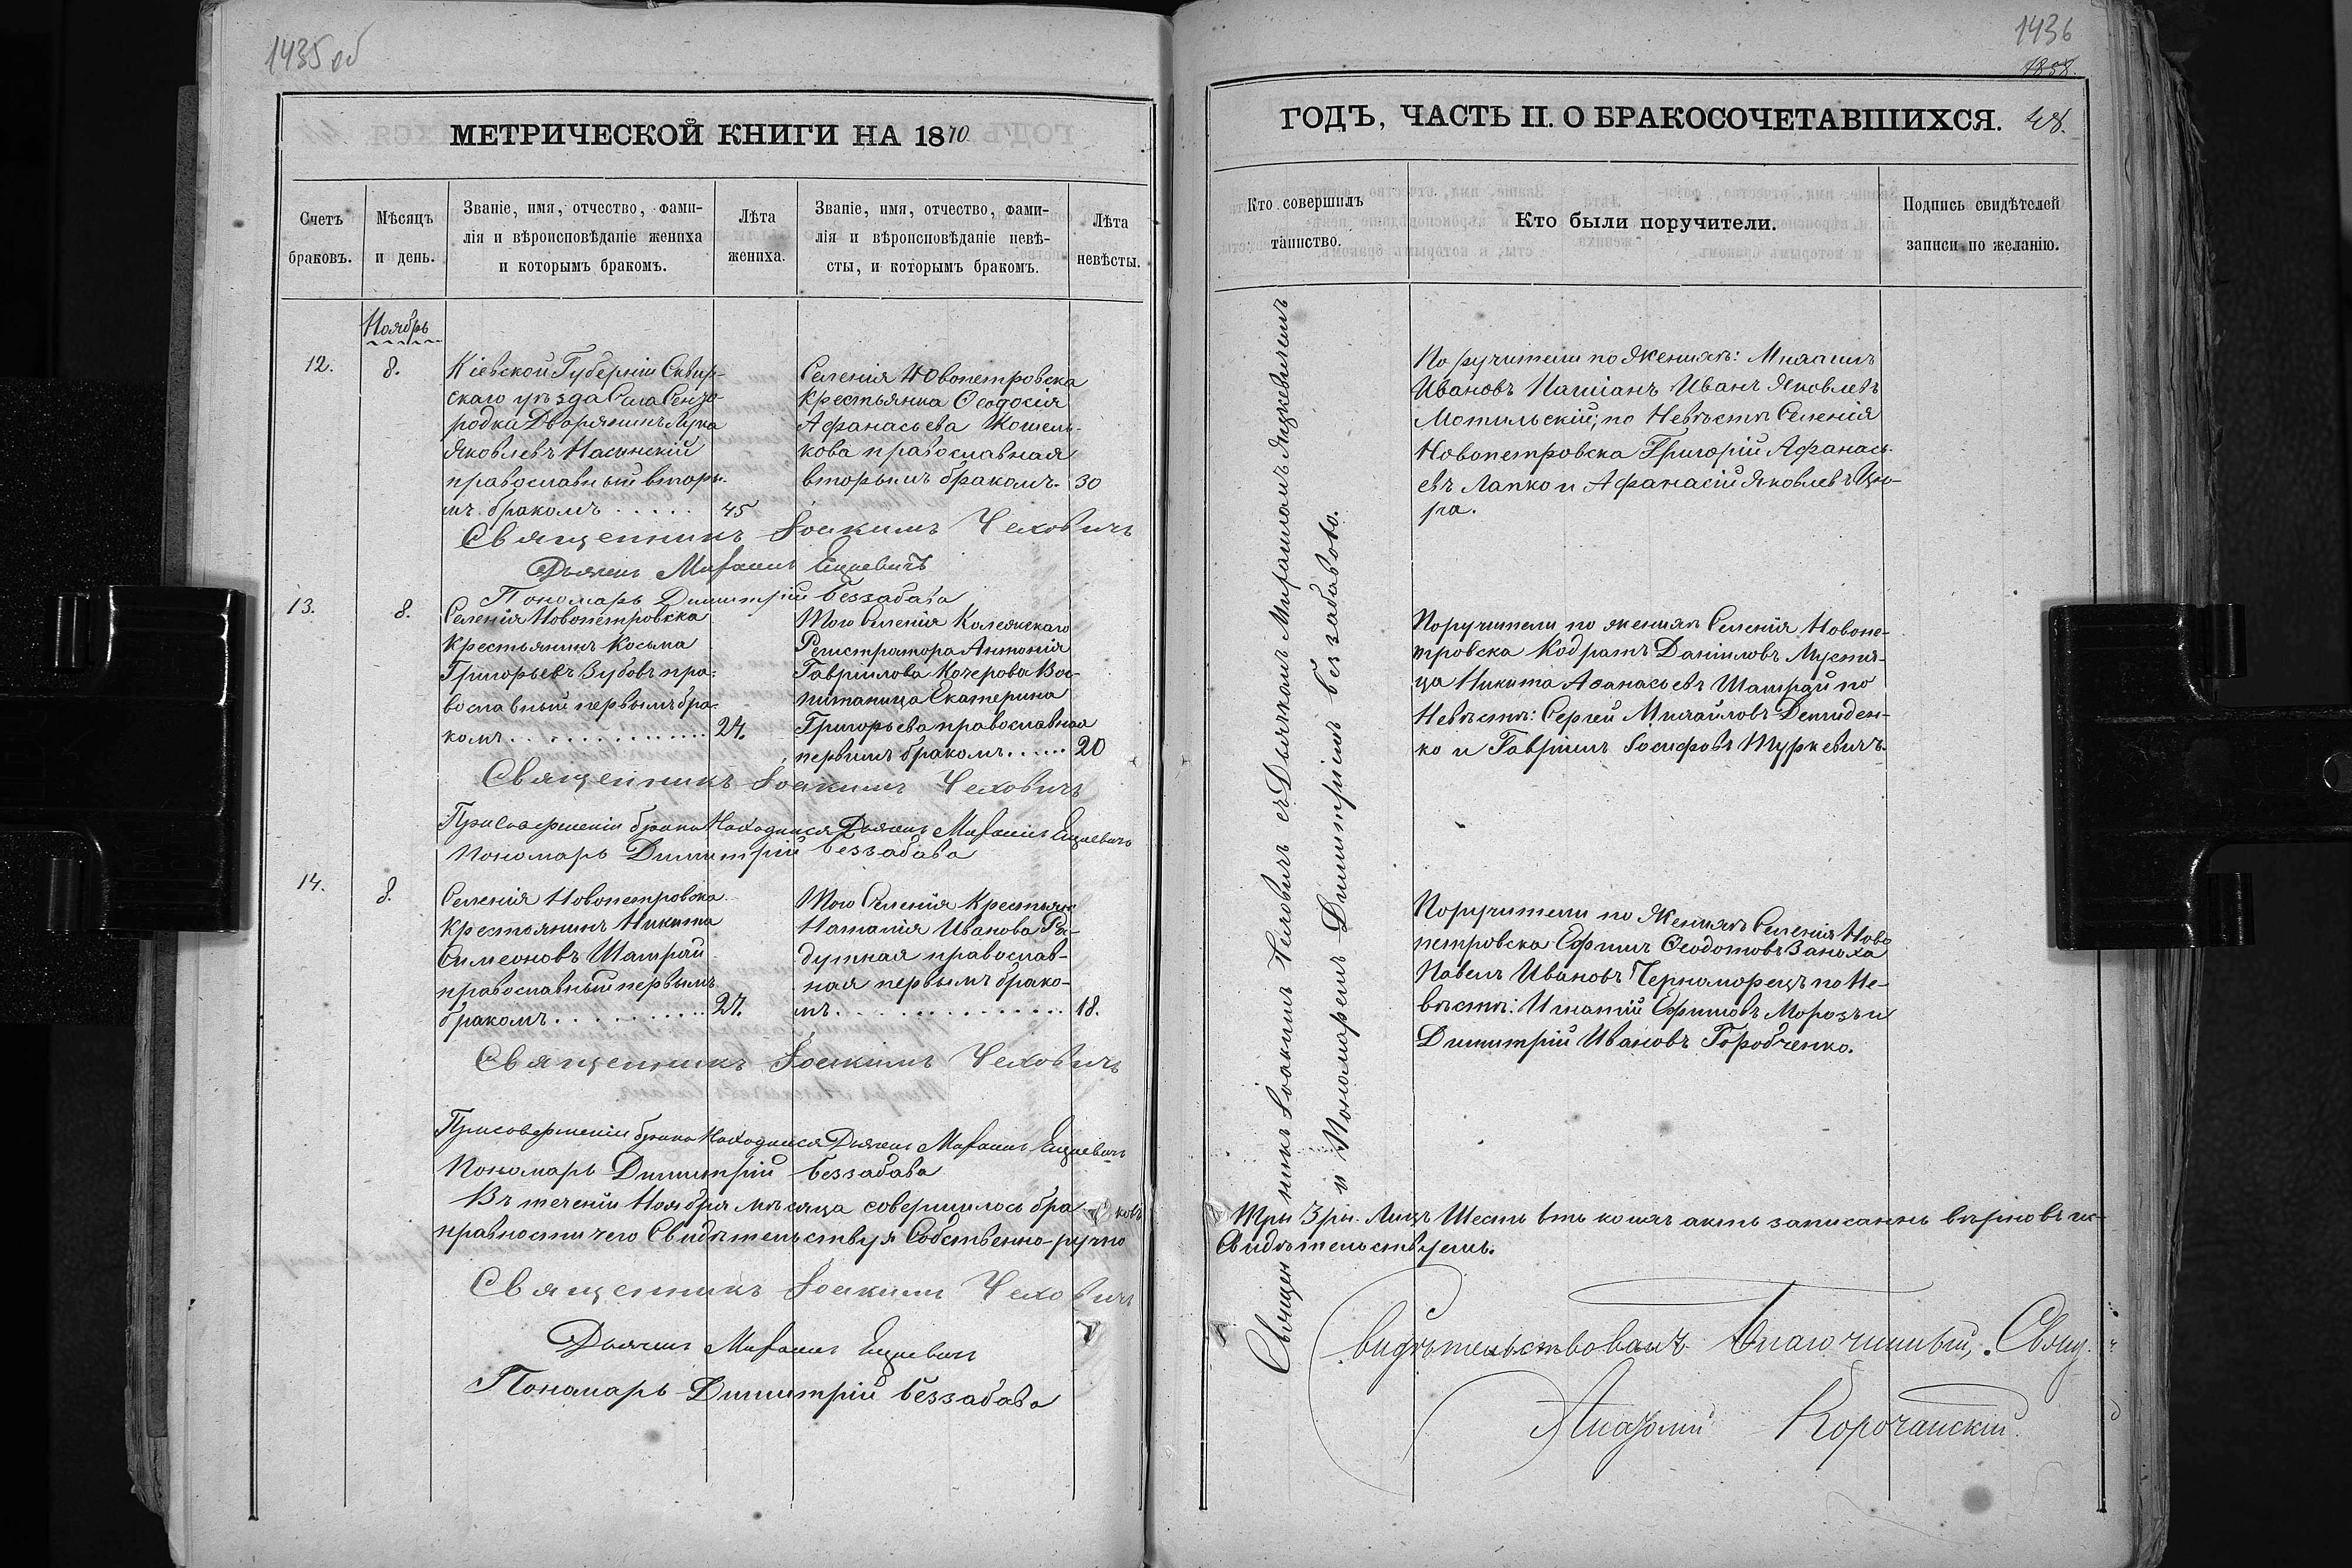 1435 об
МЕТРИЧЕСКОЙ КНИГИ НА 1870
Счетъ браковъ.
Мѣсяцъ и день.
Званіе, имя, отчество, фами-
лія и вѣроисповѣданіе жениха
и которымъ бракомъ.
Лѣта жениха.
Званіе, имя, отчество, фами-
лія и вѣроисповѣданіе невѣ-
сты, и которымъ бракомъ.
Лѣта невѣсты.
Ноябрь
12.
8.
Кіевской Губерніи Сквир-
скаго уѣзда Села
родки Дворянинъ Лука
Яковлевъ
православный вторы-
мъ бракомъ . . . . .
45
Селенія Новопетровска
Крестьянка Ѳеодосія
Афанасьева Кошель-
кова православная
вторымъ бракомъ.
30
Священникъ Іоакимъ Чехович
Дьячекъ Михаилъ Ецкевичъ
Пономарь Димитрій Беззабава
13.
8.
Селенія Новопетровска
Крестьянинъ Косьма
Григорьевъ Зубовъ пра-
вославный первымъ бра-
комъ . . . . . . . . . . . .
24.
Того Селенія Колежскаго
Регистратора Антонія
Гавріилова Кочерова Вос-
питаница Екатерина
Григорьева православная
первымъ бракомъ . . . . . .
20
Священникъ Іоакимъ Чеховичъ
При совершеніи брака Находился Дьячекъ Михаилъ Ецкевичъ
Пономарь Димитрій Беззабава
14.
8.
Селенія Новопетровска
Крестьянинъ Никита
Симеоновъ Шатрай
православный первымъ
бракомъ . . . . . . . . . .
24.
Того Селенія Крестьян
Наталія Иванова Ра-
дутная православ-
ная первымъ брако-
мъ . . . . . . . . . . . . . .
18.
Священникъ Іоакимъ Чеховичъ
При совершеніи брака Находился Дьячекъ Михаилъ Ецкевичъ
Пономарь Димитрій Беззабава
Въ теченіи Ноября мѣсяца совершилось бра ковъ
правности чего Свидѣтельствуя Собственно-ручно
Священникъ Іоакимъ Чеховичъ
Дьячекъ Михаилъ Ецкевичъ
Пономарь Димитрій Беззабава
1436
1858.
ГОДЪ, ЧАСТЬ II. О БРАКОСОЧЕТАВШИХСЯ.
48.
Кто совершилъ таинство.
Кто были поручители.
Подпись свидѣтелей
записи по желанію.
Священникъ Іоакимъ Чеховичъ съ Дьячкомъ Михаиломъ Яцкевичемъ
и Пономаремъ Димитріемъ Беззабавою.
Поручители по Женихѣ: Михаилъ
Ивановъ Иванъ Яковлевъ
Мотыльскій; по Невѣстѣ Селенія
Новопетровска Григорій Афанась-
евъ Лапко и Афанасій Яковлевъ Цю-
ра.
Поручители по женихѣ Селенія Новопе-
тровска Кодратъ Даніиловъ
Никита Аѳанасьевъ Шатрай по
Невѣстѣ: Сергей Михайловъ Демиден-
ко и Гавріилъ Іосифовъ Туркевичъ.
Поручители по Женихѣ Селенія Ново
петровска Ефимъ Ѳеодотовъ Заноха
Павелъ Ивановъ Черноморецъ по Не-
вѣстѣ: Игнатій Ефимовъ Морозъ и
Димитрій Ивановъ Горобченко.
Три 3 ри. Лицъ Шесть актъ записаннъ вѣрно въ чемъ
Свидѣтельствуемъ.
Свидѣтельствовалъ Благочинный, Свящ.
Корочанскій